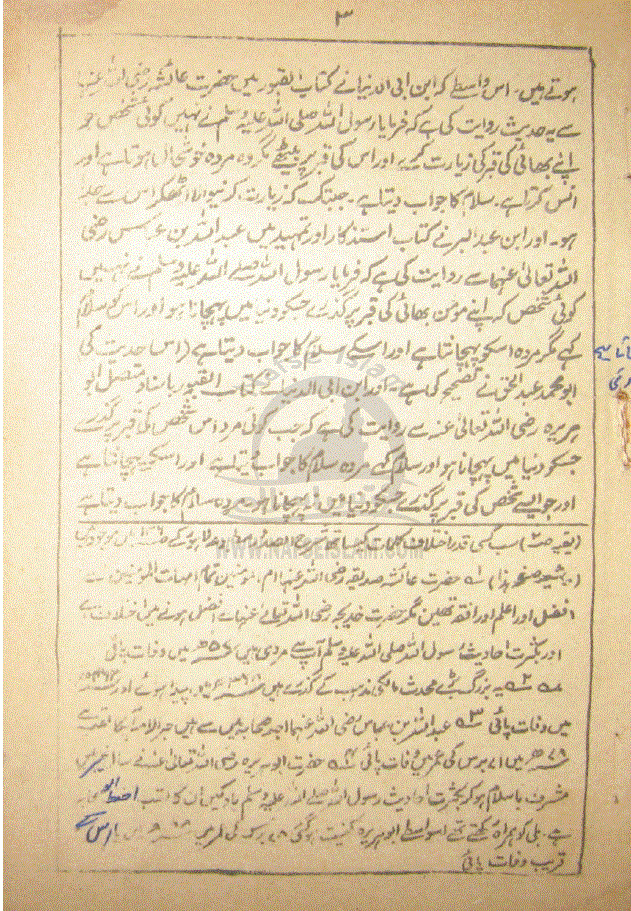 ۳
ہوتے ہیں۔ اس واسطے کہ ابن ابی الدنیا نے کتاب القبور میں حضرت عائشہ رضی اللہ عنہا
سے یہ حدیث روایت کی ہے کہ فرمایا رسول اللہ صلی اللہ علیہ وسلم نے نہیں کوئی شخص جو
اپنے بھائی کی قبر کی زیارت کرے اور اس کی قبر پر بیٹھے مگر وہ مردہ خوشحال ہوتا ہے اور
انس کرتا ہے۔ سلام کا جواب دیتا ہے۔ جبتک کہ زیارت کرنیوالا اٹھکر اس سے جدا
ہو۔ اور ابن عبدالبر نے کتاب استذکار اور تمہید میں عبداللہ بن عباس رضی
اللہ تعالیٰ عنہما سے روایت کی ہے کہ فرمایا رسول اللہ صلے اللہ علیہ وسلم نے نہیں
کوئی شخص کہ اپنے مومن بھائی کی قبر پر گذرے جسکو دنیا میں پہچانتا ہو اور اس کو سلام
کہے مگر مردہ اسکو پہچانتا ہے اور اسکے سلام کا جواب دیتا ہے (اس حدیث کی
ابو محمد عبدالحق نے تصحیح کی ہے۔ اور ابن ابی الدنیا نے کتاب القبور باسناد متصل ابو
ہریرہ رضی اللہ تعالیٰ عنہ سے روایت کی ہے کہ جب کوئی مرد اس شخص کی قبر پر گذرے
جسکو دنیا میں پہچانتا ہو اور سلام کہے مردہ سلام کا جواب دیتا ہے اور اسکو پہچانتا ہے
اور جو ایسے شخص کی قبر پر گذرے جسکو دنیا میں نہ پہچانتا ہو مردہ سلام کا جواب دیتا ہے
(بقیہ صـ۲) سب کسی قدر اختلاف کلمات کیساتھ شرح الصدور
(حاشیہ صفحہ ہذا) حضرت عائشہ صدیقہ رضی اللہ عنہا ام المومنین تمام امہات المومنین سے
افضل اور اعلم اور افقہ تھیں مگر حضرت خدیجہ رضی اللہ تعالےٰ عنہا سے افضل ہونے میں اختلاف ہے
اور بکثرت احادیث رسول اللہ صلی اللہ علیہ وسلم آپ سے مروی ہیں میں وفات پائی
یہ بزرگ بڑے محدث مالکی مذہب کے گذرے ہیں میں پیدا ہوئے اور
میں وفات پائی عبداللہ بن عباس رضی اللہ عنہما اجلہ صحابہ میں سے ہیں حبر الامہ آپکا لقب ہے
میں ۷۱ برس کی عمر میں وفات پائی حضرت ابو ہریرہ رضی اللہ تعالیٰ عنہ
مشرف باسلام ہو کر بکثرت احادیث رسول اللہ صلے اللہ علیہ وسلم یاد کیں ان کا لقب
ہے۔ بلی کو ہمراہ رکھتے تھے اسواسطے ابو ہریرہ کنیت ہو گئی برس کی عمر میں
قریب وفات پائی
Nafse Islam
WWW.NAFSEISLAM.COM